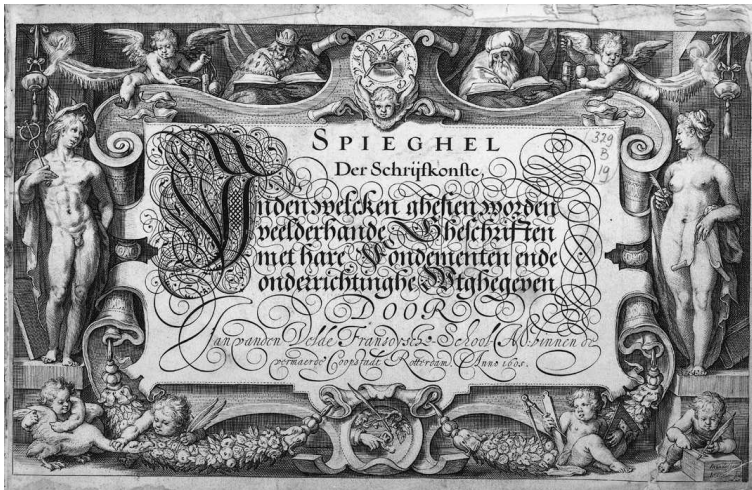 SPIEGHEL
Der Schrijfkonste,
Inden welcken ghesien worden
veelderhande Gheschriften
met hare Fondementen ende
onderrichtinghe Wtghegeven
DOOR
Jan vanden Velde Fransoysch-School Mr. binnen de
vermaerde Coopstadt Rotterdam Anno 1605.
329
B
19